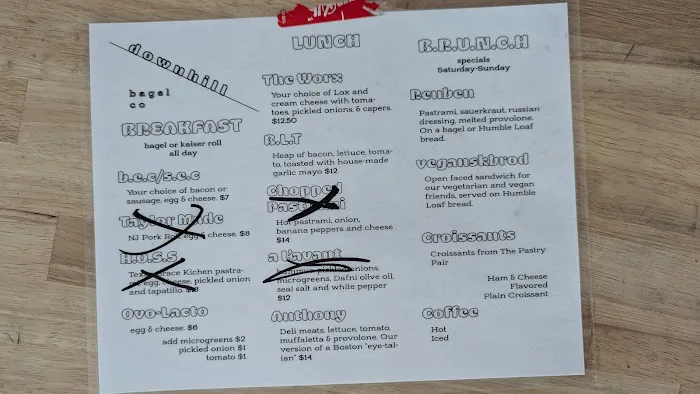 downhill
bagel
co
BREAKFAST
bagel or kaiser roll
all day
b.e.c/s.e.c
Your choice of bacon or
sausage, egg & cheese. $7
Taylor Made
NJ Pork Roll egg & cheese. $8
H.O.S.S
pastra-
egg, cheese, pickled onion
and tapatillo.
Ovo-Lacto
egg & cheese. $6
add microgreens $2
pickled onion $1
tomato $1
LUNCH
The Worx
Your choice of Lox and
cream cheese with toma-
toes, pickled onions, & capers.
$12.50
B.L.T
Heap of bacon, lettuce, toma-
to, toasted with house-made
garlic mayo $12
Chopped
Pastrami
Hot pastrami, onion,
banana peppers and cheese
$14
a L'avant
Hummus pickled onions,
microgreens, Dafni olive oil,
seal salt and white pepper
$12
Anthony
Deli meats, lettuce, tomato,
muffaletta & provolone. Our
version of a Boston "eye-tal-
ian" $14
B.R.U.N.C.H
specials
Saturday-Sunday
Reuben
Pastrami, sauerkraut, russian
dressing, melted provolone.
On a bagel or Humble Loaf
bread.
veganskbrod
Open faced sandwich for
our vegetarian and vegan
friends, served on Humble
Loaf bread.
Croissants
Croissants from The Pastry
Pair
Ham & Cheese
Flavored
Plain Croissant
Coffee
Hot
Iced